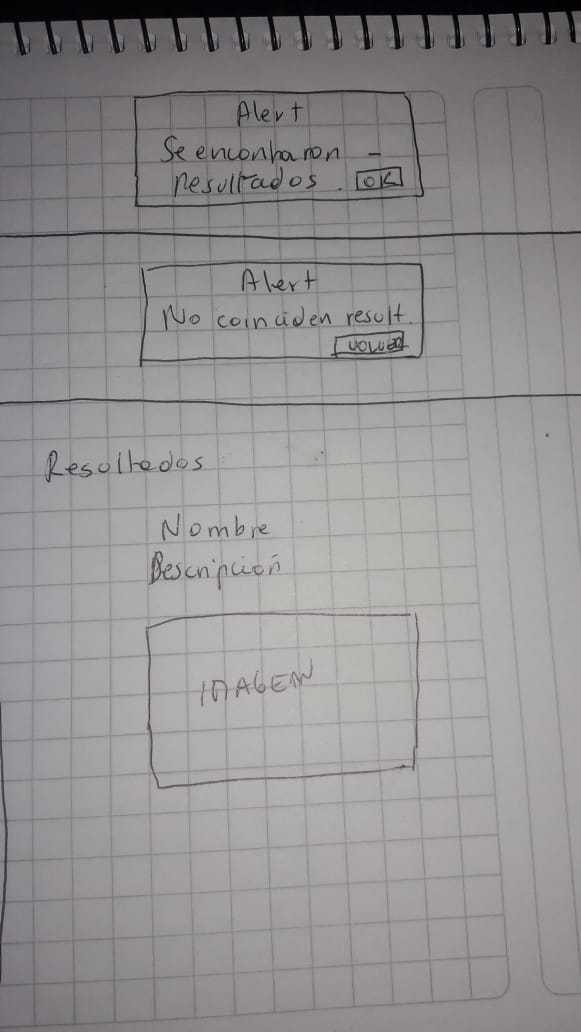 Alert
Se encontraron _
resultados. OK
Alert
No coinciden result.
VOLVER
Resultados
Nombre
Descripción
IMAGEN